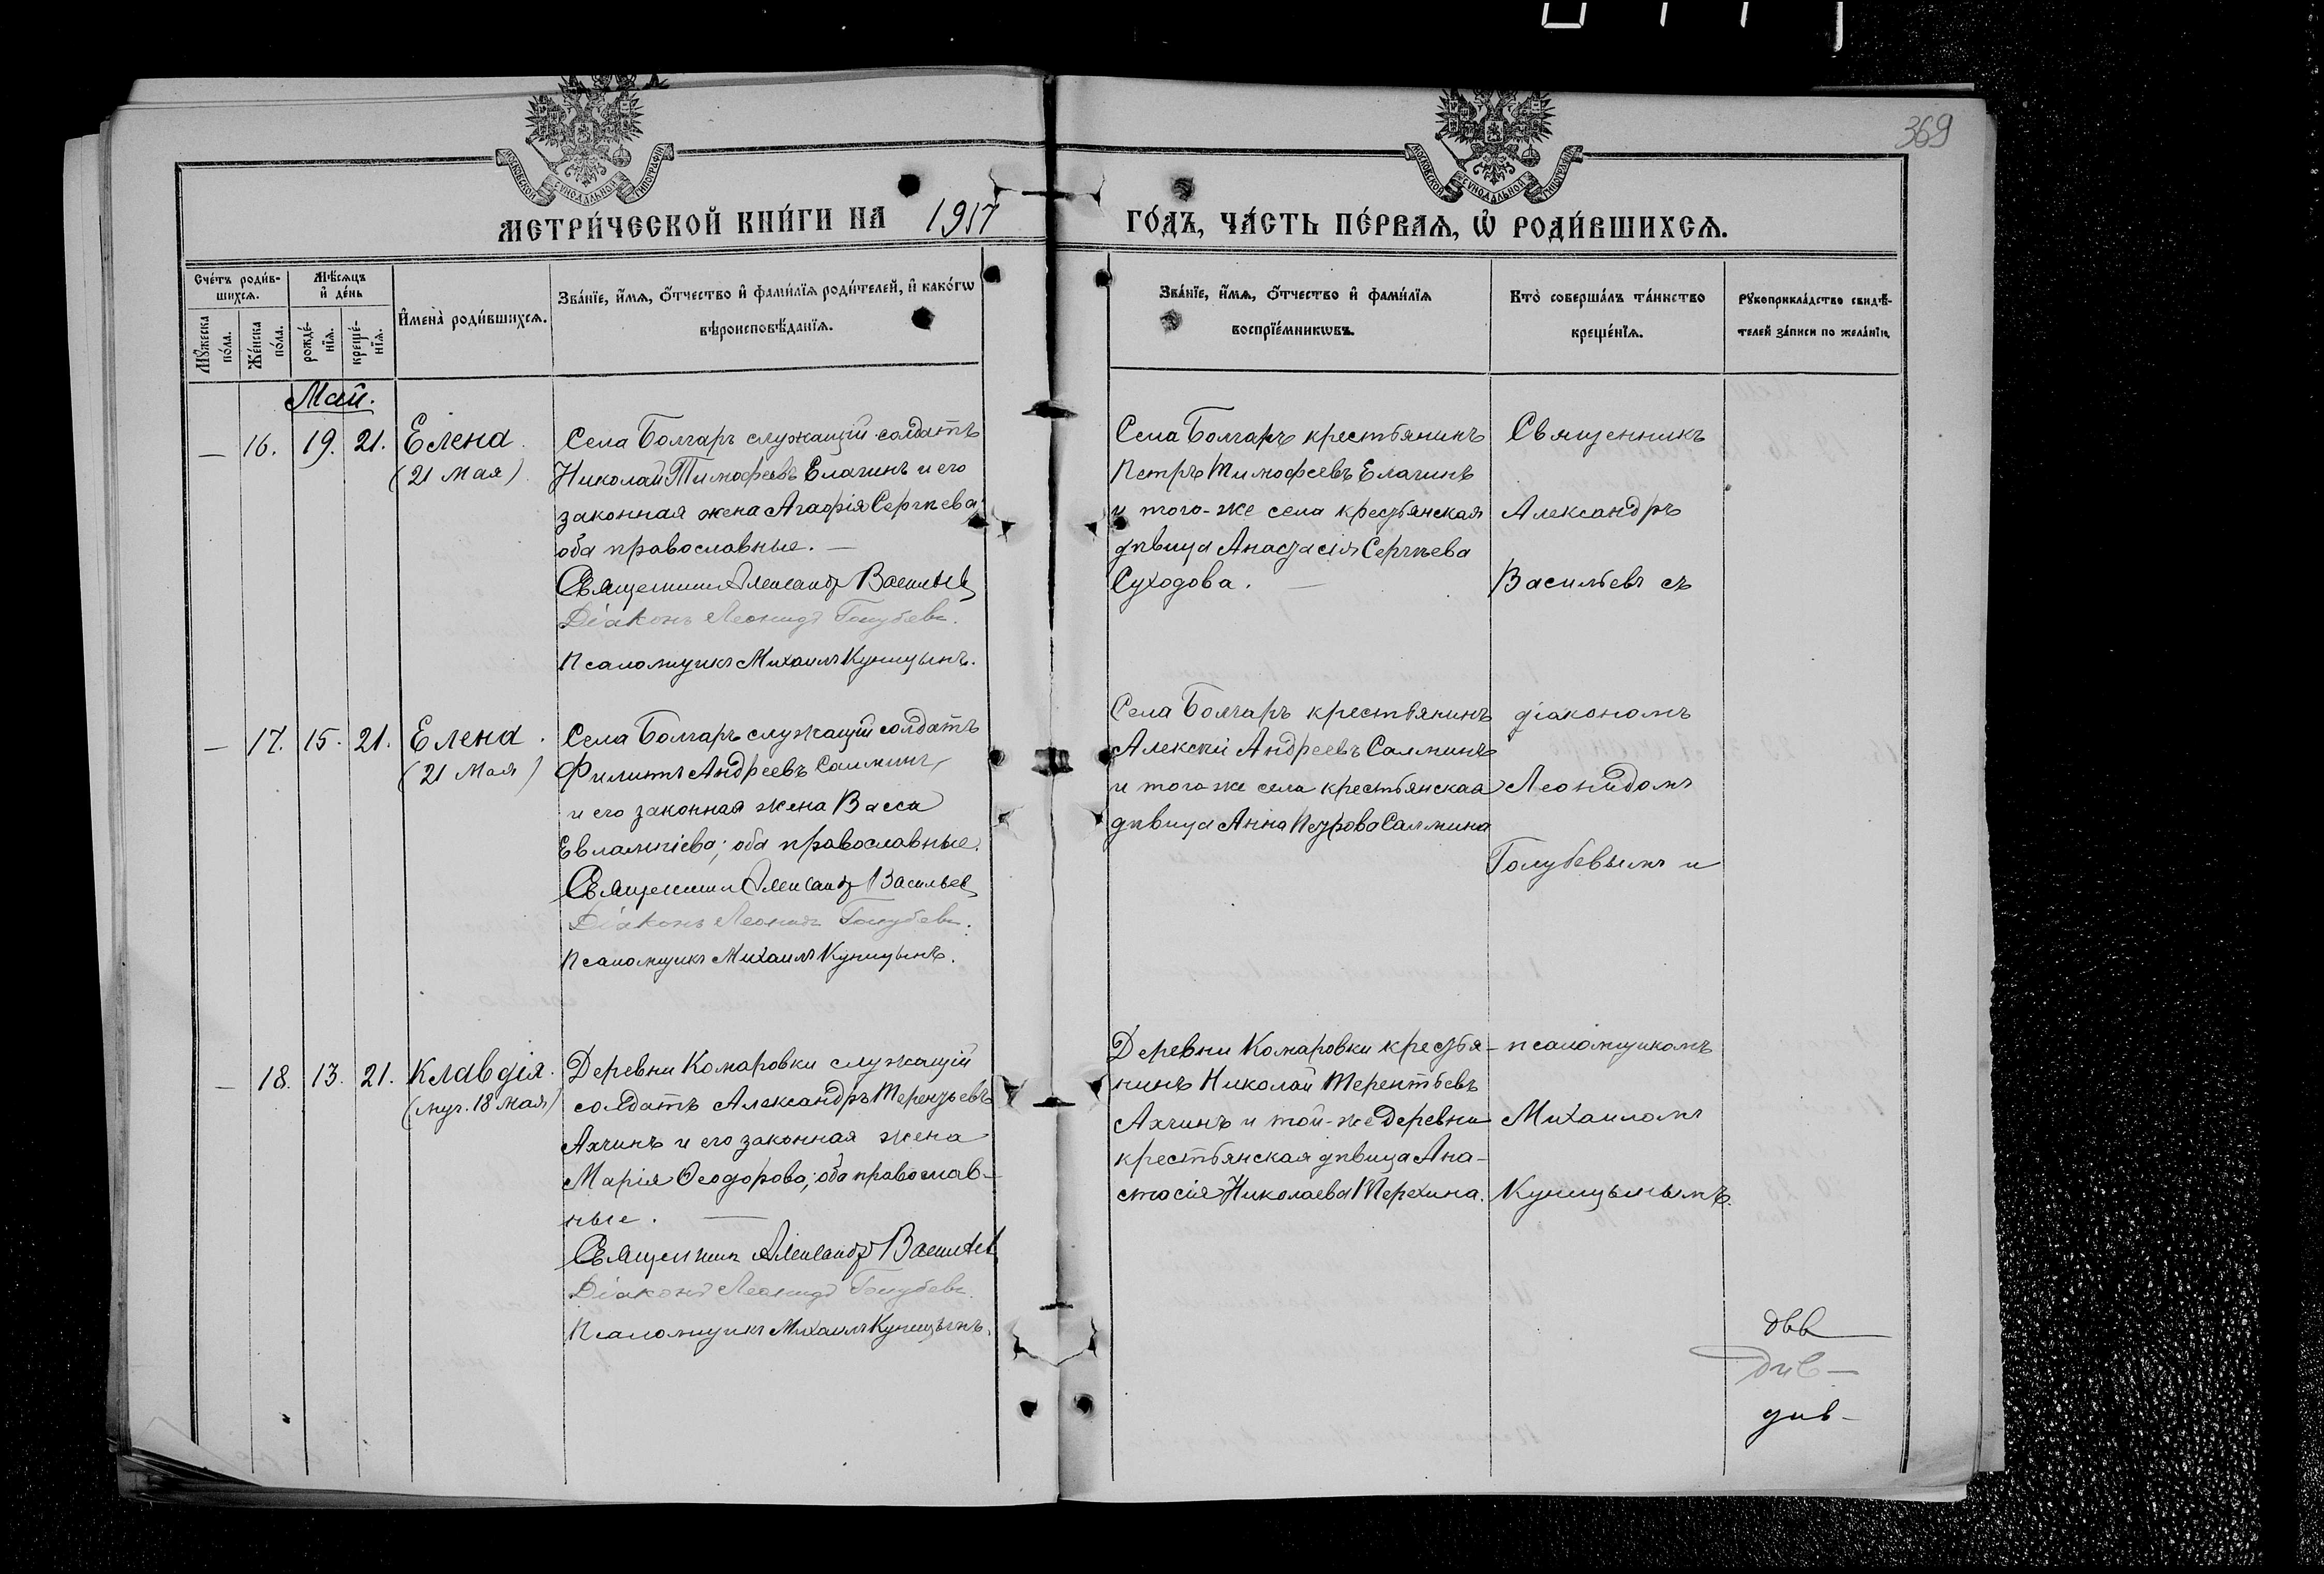 369
МОСКОВСКОЙ СѴНОДАЛЬНОЙ ТИПОГРАФІИ
МОСКОВСКОЙ СѴНОДАЛЬНОЙ ТИПОГРАФІИ
МЕТРИ́ЧЕСКОЙ КНИ́ГИ НА 1917 ГО́ДЪ, ЧА́СТЬ ПЕ́РВАЯ, Ѡ҆ РОДИ́ВШИХСЯ.
Сче́тъ роди́в-
шихся.
Мѣ́сяцъ
и҆ де́нь
Мꙋ́жеска
по́ла.
Же́нска
по́ла.
рожде́-
нїя.
креще́-
нїя.
И҆мена̀ роди́вшихся.
Зва́нїе, и҆́мя, ѻ҆́тчество и҆ фами́лїя роди́телей, и҆ како́гѡ
вѣроисповѣ́данїя.
Зва́нїе, и҆́мя, ѻ҆́тчество и҆ фами́лїя
воспрїе́мникѡвъ.
Кто̀ соверша́лъ та́инство
креще́нїя.
Рꙋкоприкла́дство свидѣ́-
телей за́писи по жела́нїю.
Май.
— 16. 19. 21. Елена.
(21 мая)
Села Болгаръ служащій солдатъ
Николай Тимофеевъ Елагинъ и его
законная жена Агафія Сергѣева,
оба православные. —
Священникъ Александръ Васильевъ
Діаконъ Леонидъ Голубевъ.
Псаломщикъ Михаилъ Куницынъ.
Села Болгаръ крестьянинъ
Петръ Тимофеевъ Елагинъ
и того-же села крестьянская
дѣвица Анастасія Сергѣева
Суходова. —
Священникъ
Александръ
Васильевъ съ
— 17. 15. 21. Елена.
(21 мая)
Села Болгаръ служащій солдатъ
Филиппъ Андреевъ Салминъ,
и его законная жена Васса
Евлампіева; оба православные.
Священникъ Александръ Васильев
Діаконъ Леонидъ Голубевъ.
Псаломщикъ Михаилъ Куницынъ.
Села Болгаръ крестьянинъ
Алексѣй Андреевъ Салминъ
и того же села крестьянская
дѣвица Анна Петрова Салмина
діакономъ
Леонидомъ
Голубевымъ и
— 18. 13. 21. Клавдія.
(муч. 18 мая)
Деревни Комаровки служащій
солдатъ Александръ Терентьевъ
Ахчинъ и его законная жена
Марія Ѳеодорова; оба православ-
ные. —
Священникъ Александръ Васильев
Діаконъ Леонидъ Голубевъ.
Псаломщикъ Михаилъ Куницынъ.
Деревни Комаровки крестья-
нинъ Николай Терентьевъ
Ахчинъ и той-же деревни
крестьянская дѣвица Ана-
стасія Николаева Терехина.
псаломщикомъ
Михаиломъ
Куницынымъ.